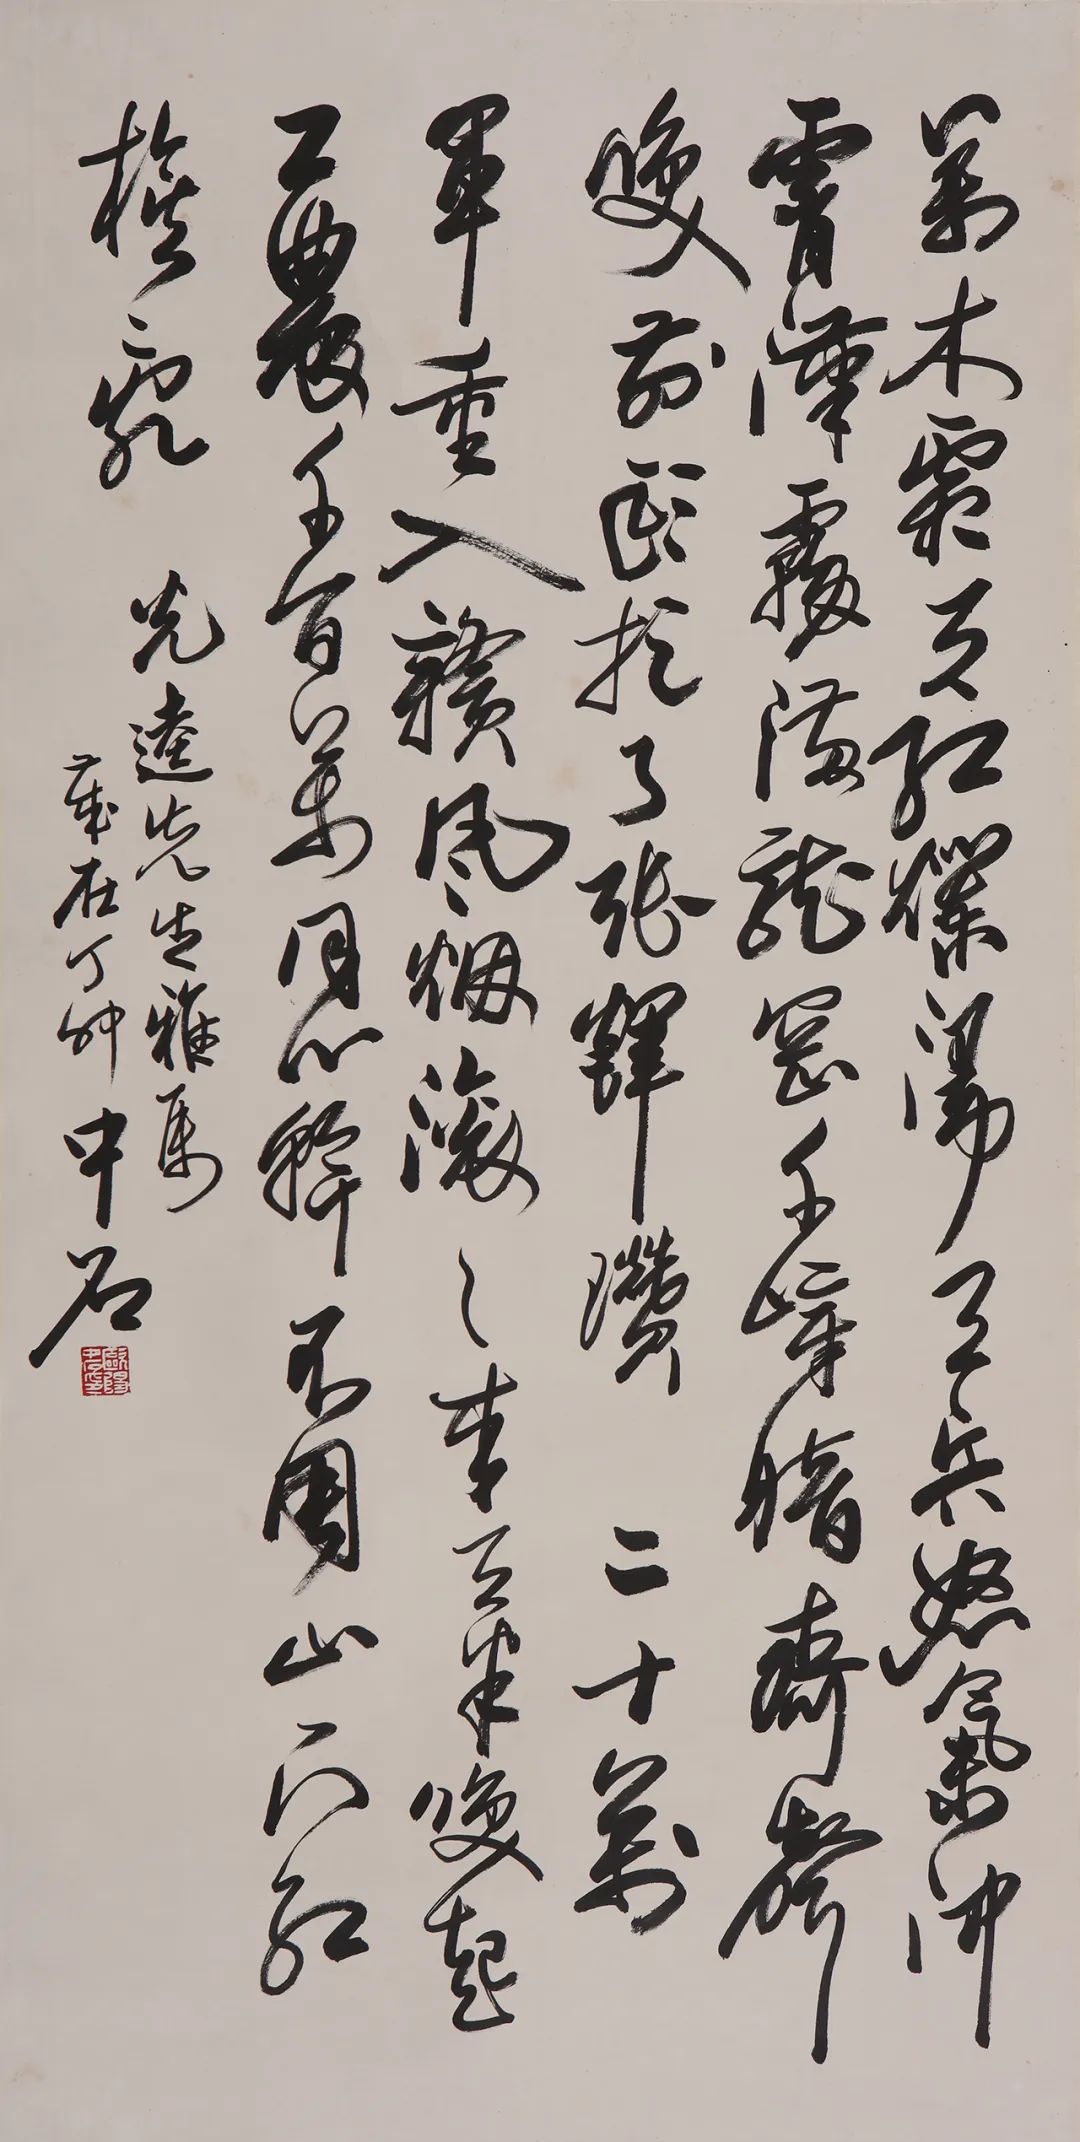 萬木霜天紅爛漫天兵怒氣沖
霄漢霧滿龍岡千嶂暗齊聲
喚前頭捉了張輝瓚 二十萬
軍重入贛風烟滾〻來天半喚起
工農千百萬同心幹不周山下紅
旗亂
光逵先生雅属
歲在丁卯中石